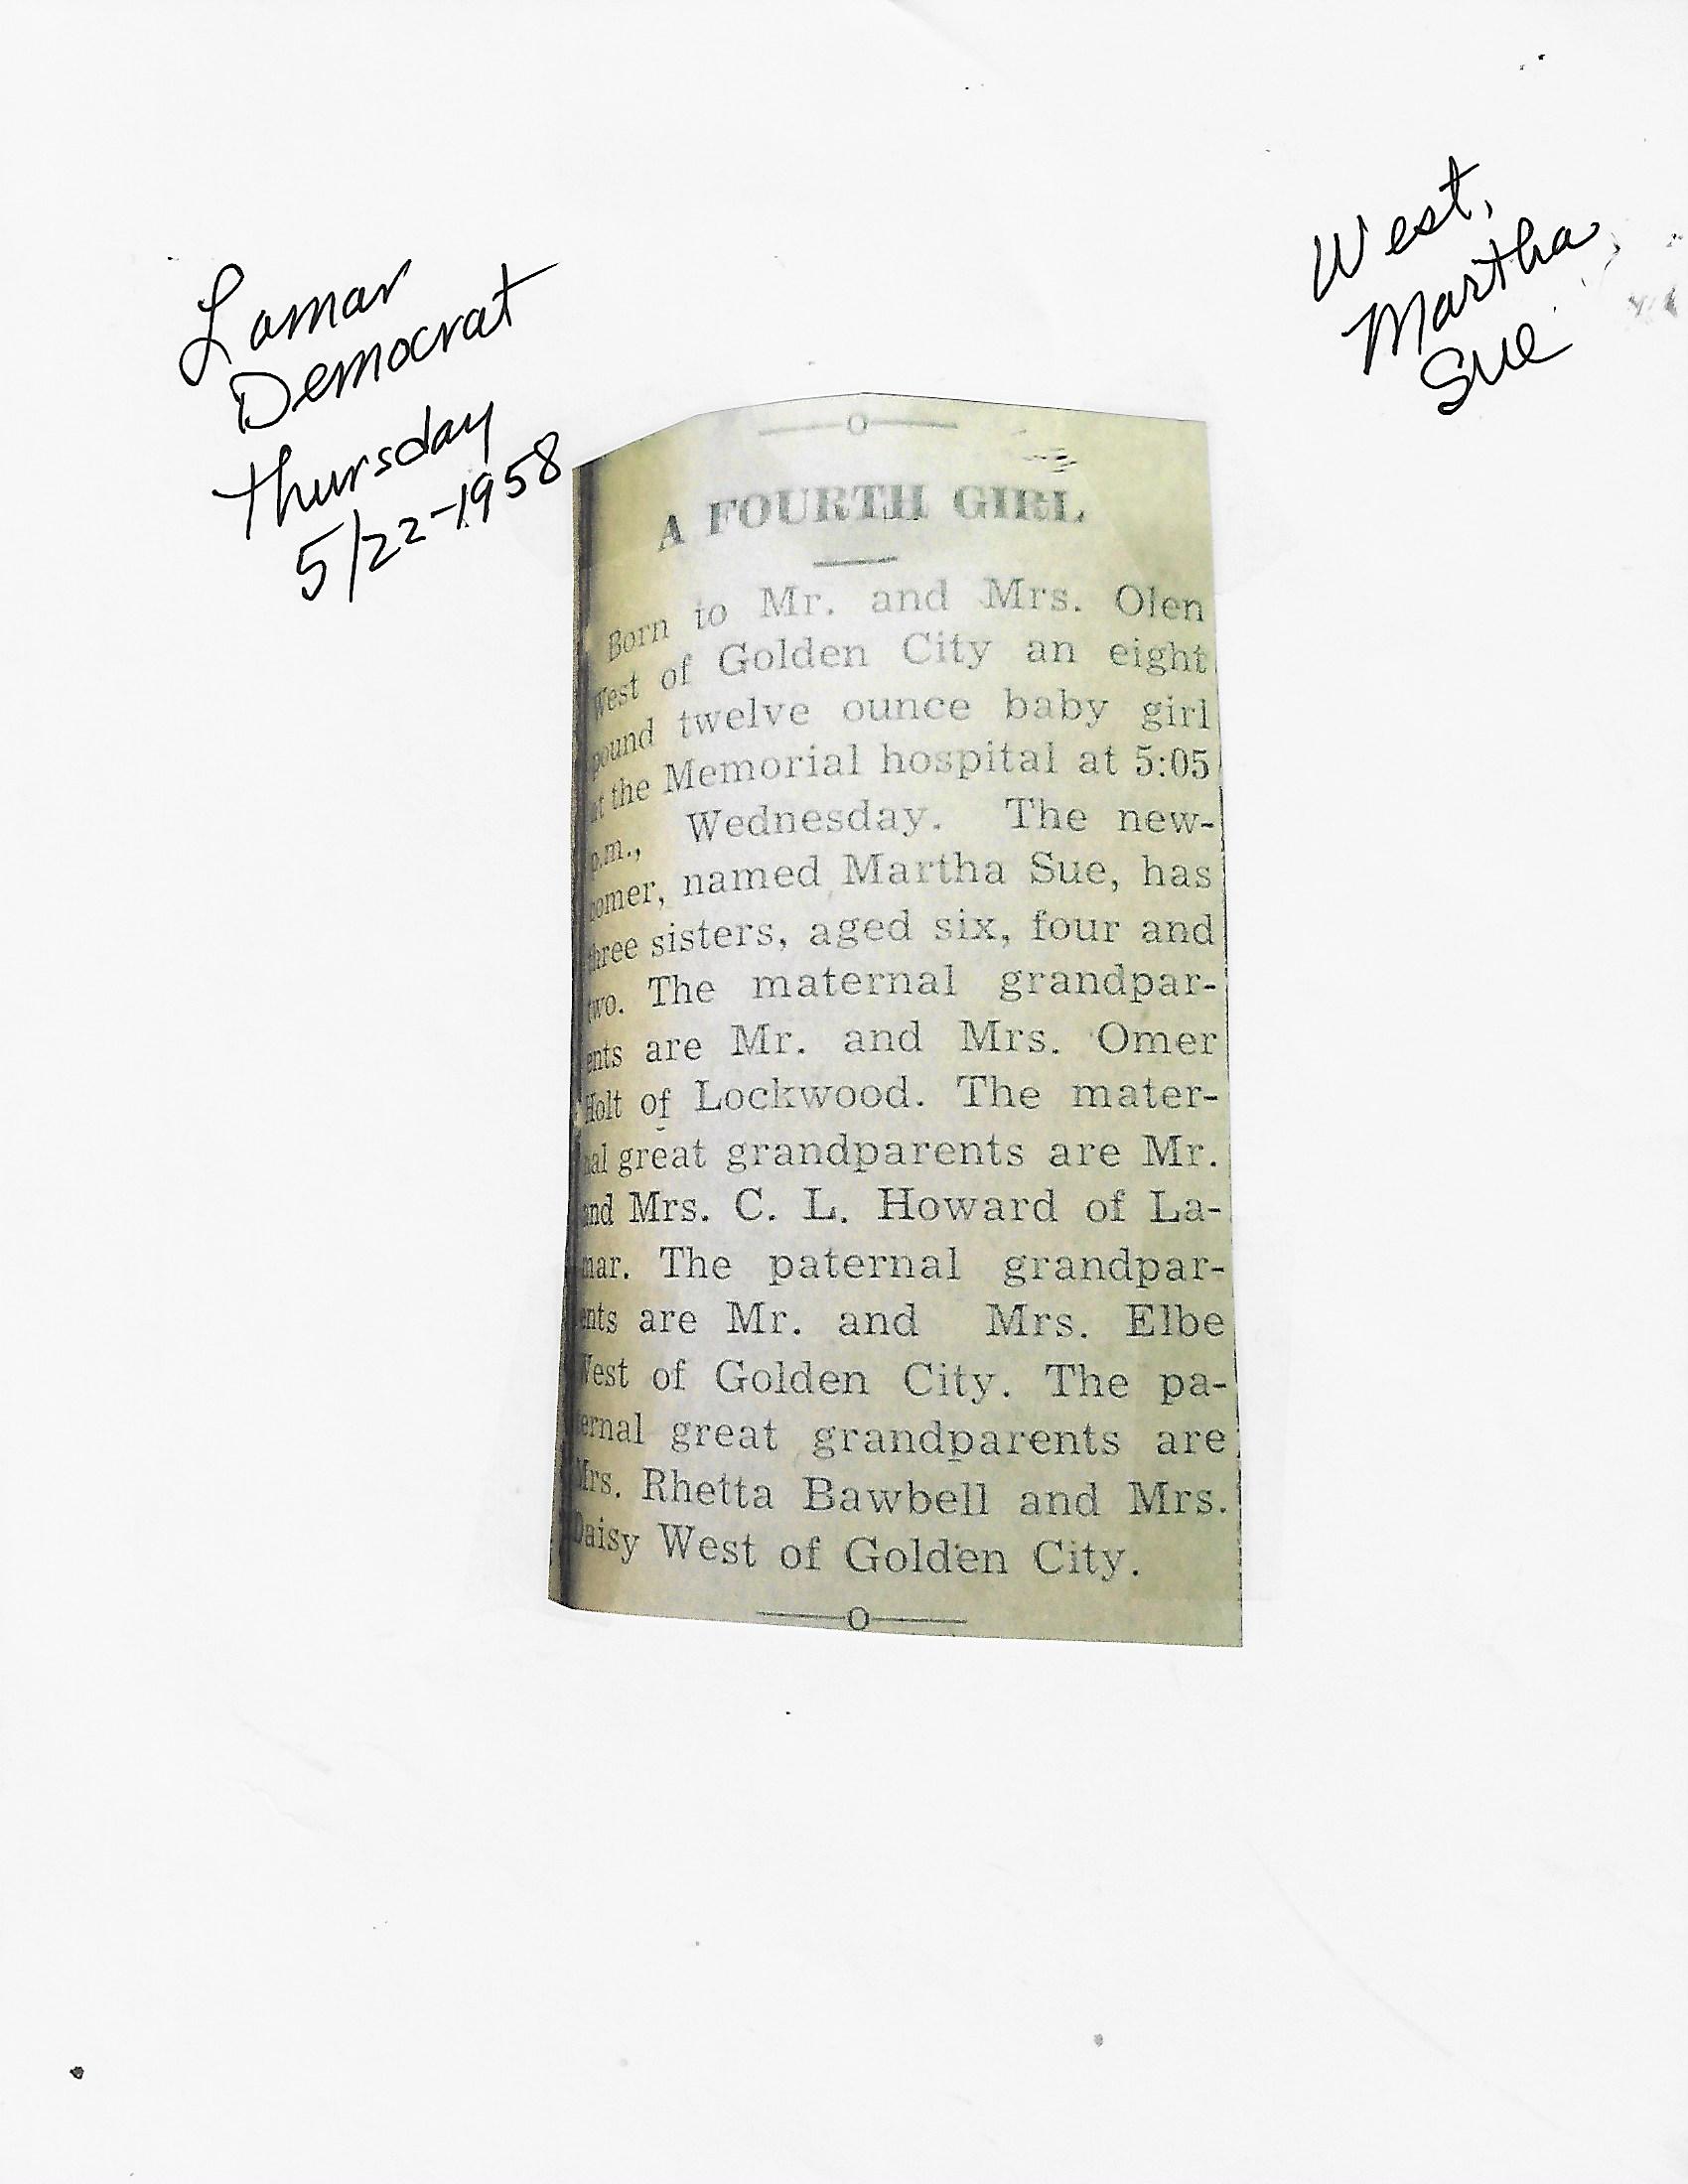 Lamar
Democrat
Thursday
5/22-1958
West,
Martha
Sue
A FOURTH GIRL
Born to Mr. and Mrs. Olen
West of Golden City an eight
pound twelve ounce baby girl
at the Memorial hospital at 5:05
p.m., Wednesday. The new-
comer, named Martha Sue, has
three sisters, aged six, four and
two. The maternal grandpar-
ents are Mr. and Mrs. Omer
Holt of Lockwood. The mater-
nal great grandparents are Mr.
and Mrs. C. L. Howard of La-
mar. The paternal grandpar-
ents are Mr. and Mrs. Elbe
West of Golden City. The pa-
ternal great grandparents are
Mrs. Rhetta Bawbell and Mrs.
Daisy West of Golden City.